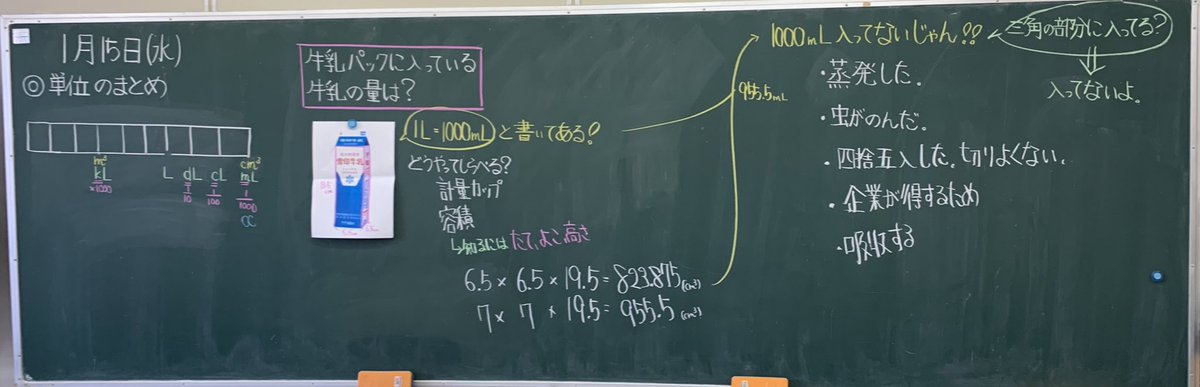 1月15日(水)
◎単位のまとめ
m³
kL
×1000
L
dL
1/10
cL
1/100
cm³
mL
1/1000
cc
牛乳パックに入っている
牛乳の量は？
雪印牛乳
1L=1000mLと書いてある！
どうやってしらべる？
計量カップ
容積
↳知るには たて、よこ 高さ
6.5×6.5×19.5=823.875(cm³)
7×7×19.5=955.5(cm³)
955.5mL
1000mL入ってないじゃん!!
三角の部分に入ってる？
入ってないよ。
・蒸発した。
・虫がのんだ。
・四捨五入した。切りよくない。
・企業が得するため
・吸収する